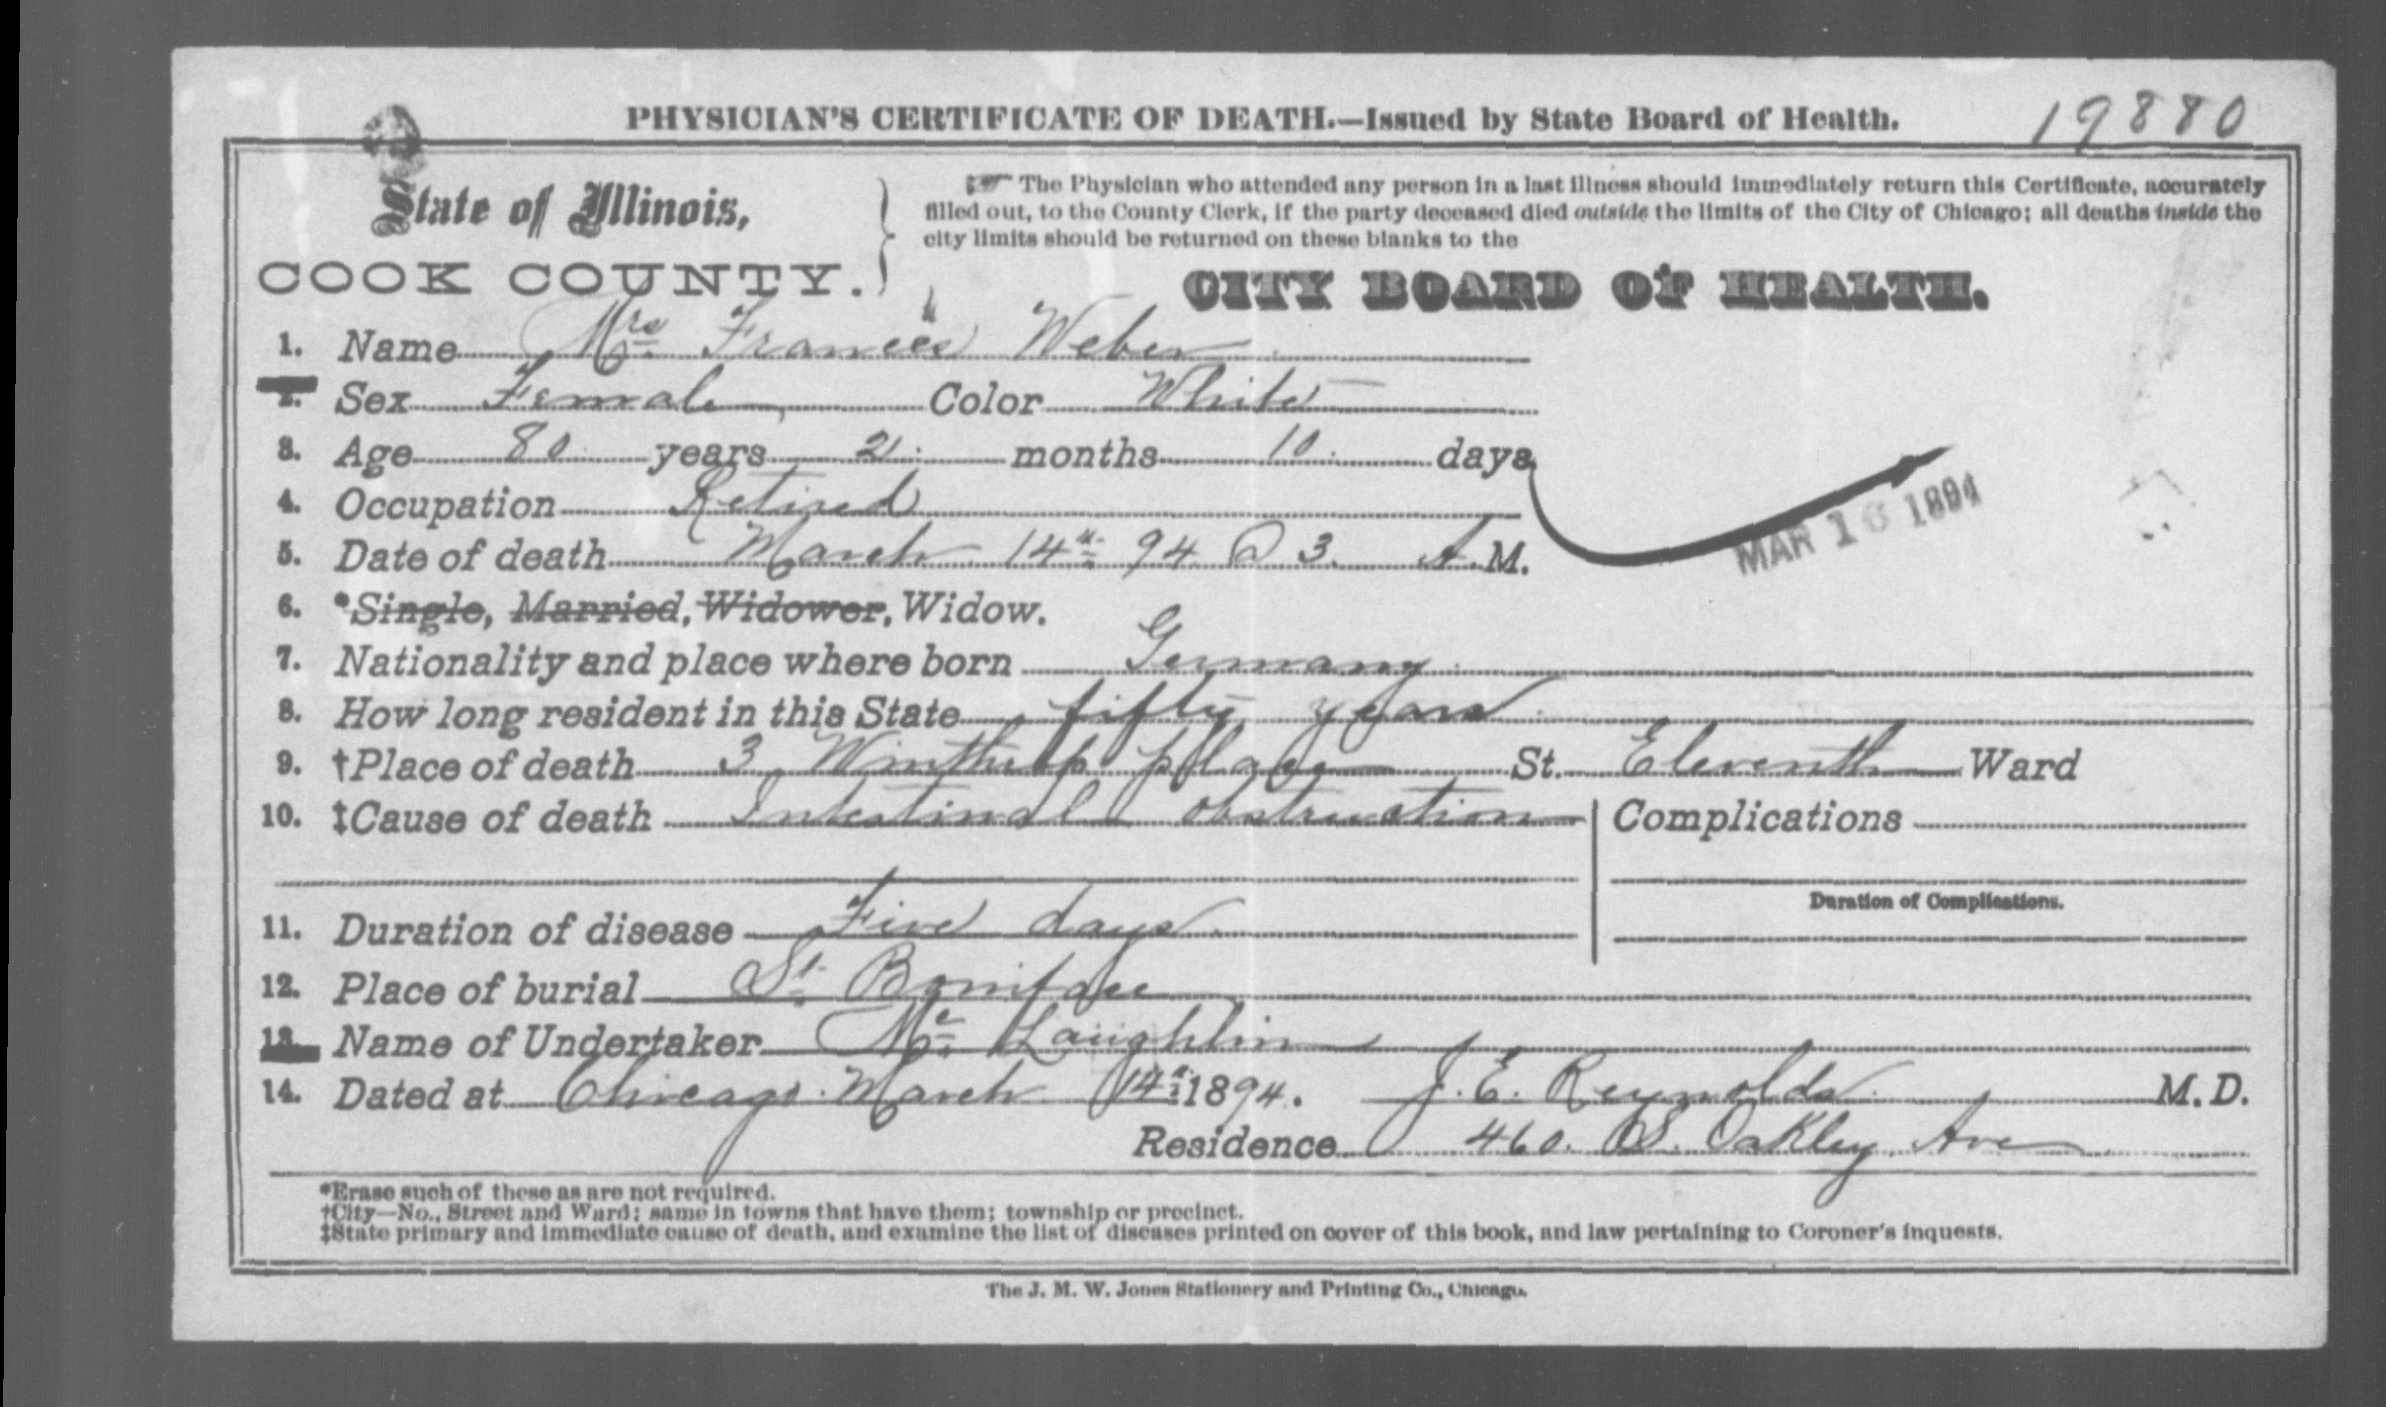 PHYSICIAN'S CERTIFICATE OF DEATH.—Issued by State Board of Health. 19880
State of Illinois,
COOK COUNTY.
The Physician who attended any person in a last illness should immediately return this Certificate, accurately
filled out, to the County Clerk, if the party deceased died outside the limits of the City of Chicago; all deaths inside the
city limits should be returned on these blanks to the
CITY BOARD OF HEALTH.
1. Name Mrs. Frances Weber
2. Sex Female Color White
3. Age 80 years 2 months 10 days
4. Occupation Retired
5. Date of death March 14th 94 @ 3 A.M.
MAR 16 1894
6. *Single, Married, Widower, Widow.
7. Nationality and place where born Germany
8. How long resident in this State fifty years
9. †Place of death 3 Winthrop place St. Eleventh Ward
10. ‡Cause of death Intestinal obstruction Complications
Duration of Complications.
11. Duration of disease Five days
12. Place of burial St. Boniface
13. Name of Undertaker Mc Laughlin
14. Dated at Chicago March 14th 1894. J. E. Reynolds M.D.
Residence 460. S. Oakley Ave
*Erase such of these as are not required.
†City—No., Street and Ward; same in towns that have them; township or precinct.
‡State primary and immediate cause of death, and examine the list of diseases printed on cover of this book, and law pertaining to Coroner's inquests.
The J. M. W. Jones Stationery and Printing Co., Chicago.